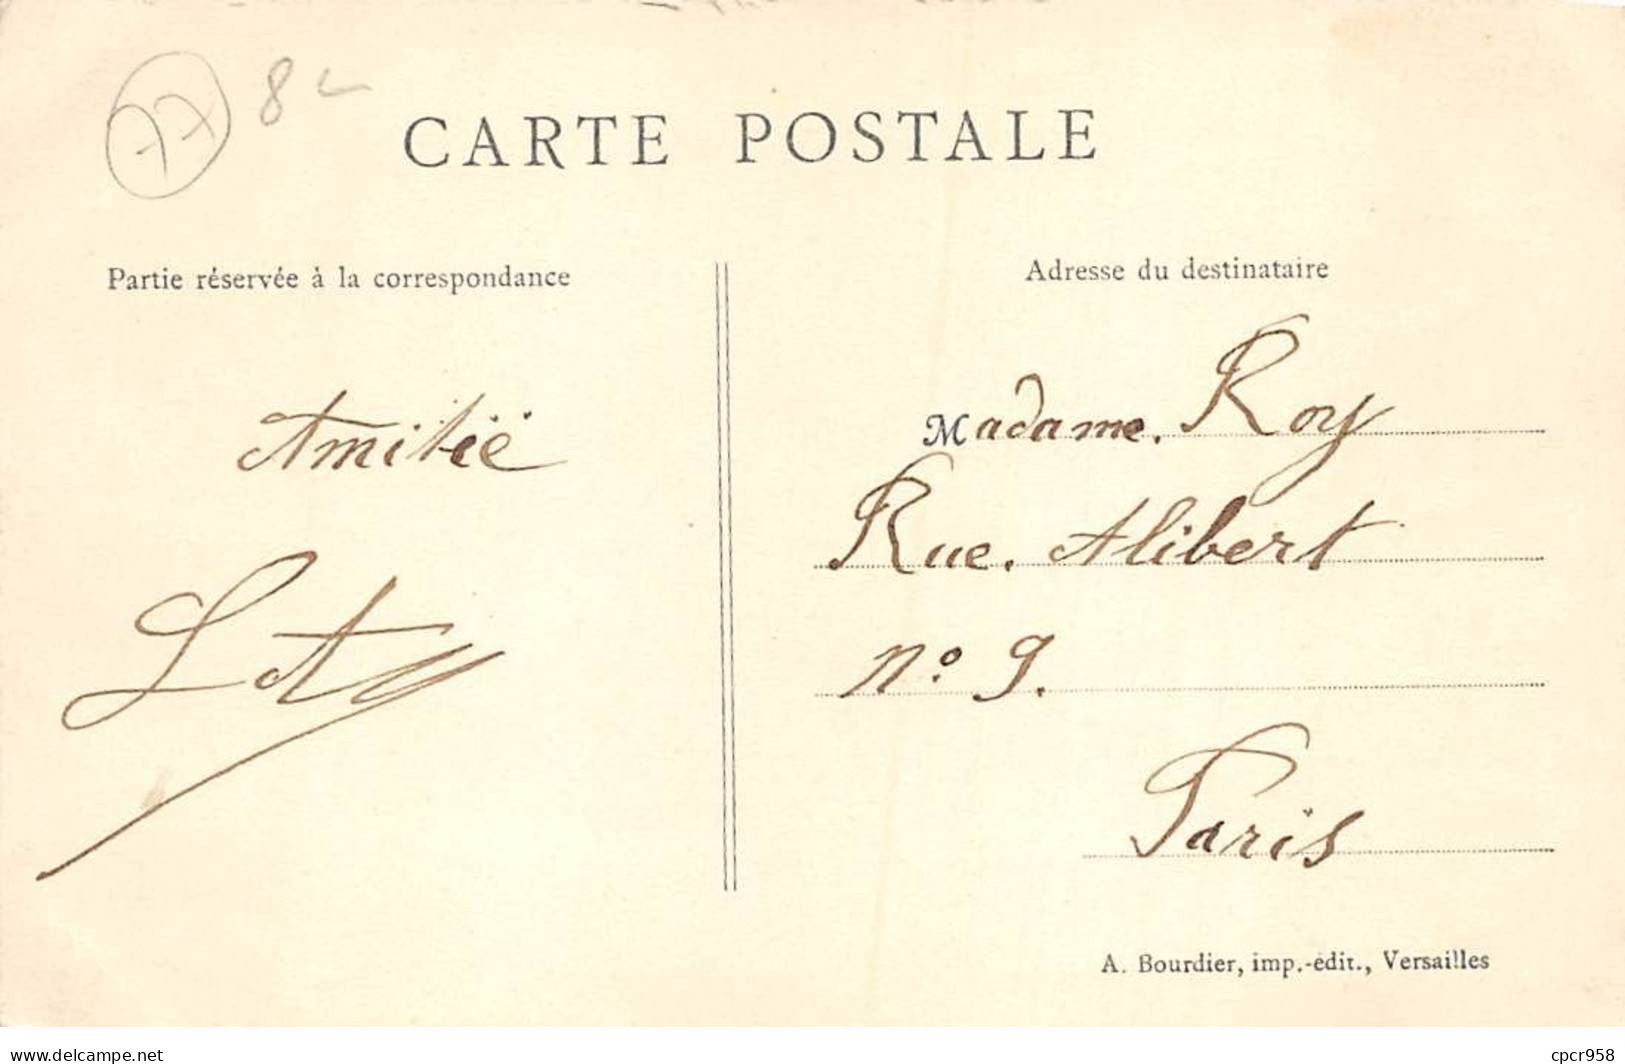 77 8
CARTE POSTALE
Partie réservée à la correspondance
Amitié
Adresse du destinataire
Madame. Roy
Rue. Alibert
n° 9.
Paris
A. Bourdier, imp.-édit., Versailles
https://www.delcampe.net
cpcr958